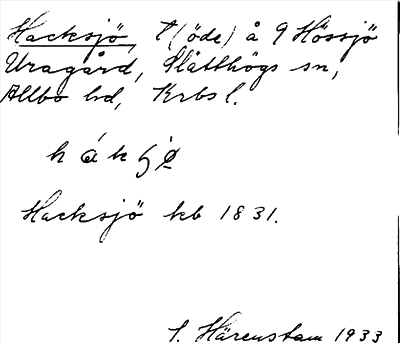 Hacksjö, T (öde) å 9 Hössjö
Uragård, Slätthögs sn,
Allbo hd, Krbs l.
hákʃø
Hacksjö kb 1831.
S. Härenstam 1933